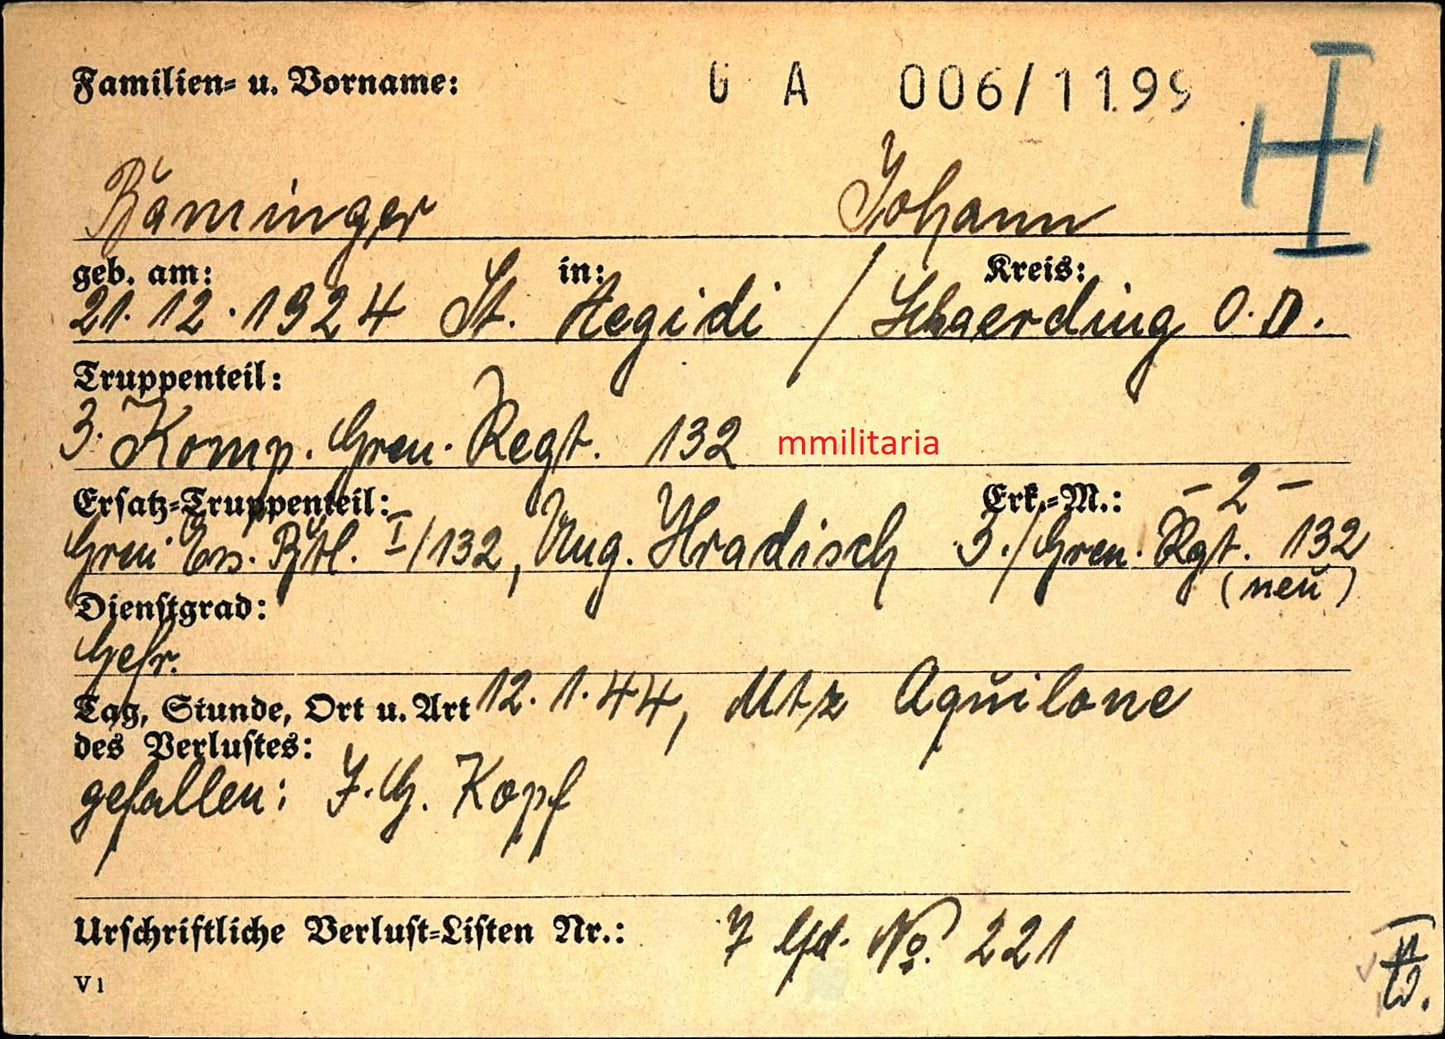 Familien- u. Vorname: G A 006/1199
Baminger Johann
geb. am: in: Kreis:
21.12.1924 St. Aegidi / Schaerding O.D.
Truppenteil:
3. Komp. Gren. Regt. 132 mmilitaria
Ersatz-Truppenteil: Erk.-M.: - 2 -
Gren Ers. Btl. I/132, Ung. Hradisch 3./Gren. Rgt. 132
(neu)
Dienstgrad:
Gefr.
Tag, Stunde, Ort u. Art 12.1.44, Mtz Aquilone
des Verlustes:
gefallen: I.G. Kopf
Urschriftliche Verlust-Listen Nr.: 7 lfd. No. 221
V1